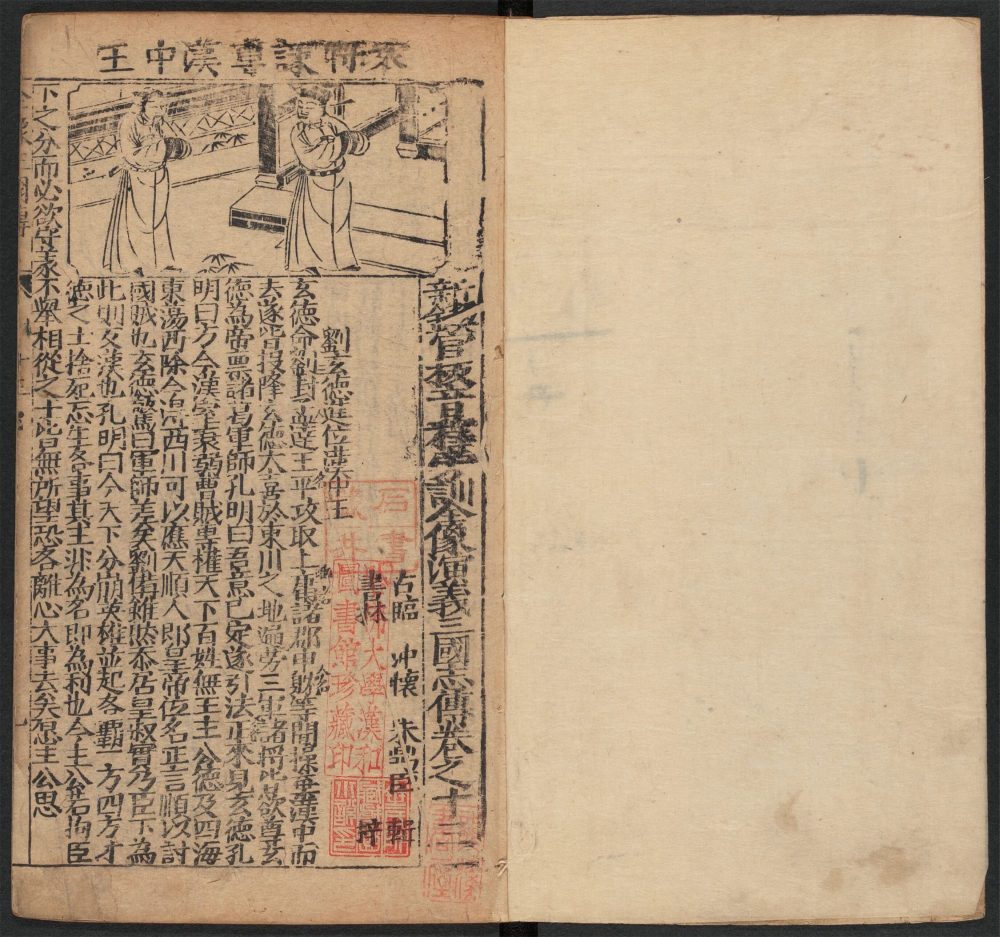 眾將議尊漢中王
新鋟音釋評林全像演義三國志傳卷之十三
古臨 冲懷 朱鼎臣 輯
書林 梓
劉玄德進位漢中王
玄德命劉封孟達王平攻取上庸諸郡申躭等聞操棄漢中而
去遂皆投降玄德大喜於東川之地遍勞三軍諸將皆欲尊玄
德為帝稟諸葛軍師孔明曰吾意已定遂引法正來見玄德孔
明曰方今漢室衰弱曹賊專權天下百姓無主主公德及四海
東蕩西除今得西川可以應天順人即皇帝位名正言順以討
國賊也玄德驚曰軍師差矣劉備雖然忝居皇叔實乃臣下為
此則反漢也孔明曰今天下分崩英雄並起各霸一方四方才
德之士捨死忘生各事其主非為名即為利也今主公若拘臣
下之分而必欲守義不舉相從之士皆無所望恐各離心大事去矣愿主公思
師大學漢和
圖書館珍藏印